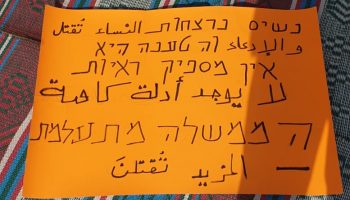 נשים נרצחות النساء تُقتل
والإدعاء וה טענה היא
אין מספיק ראיות
لا يوجد أدلة كافية
ה ממשלה מתעלמת
— المزيد تُقتلنَ